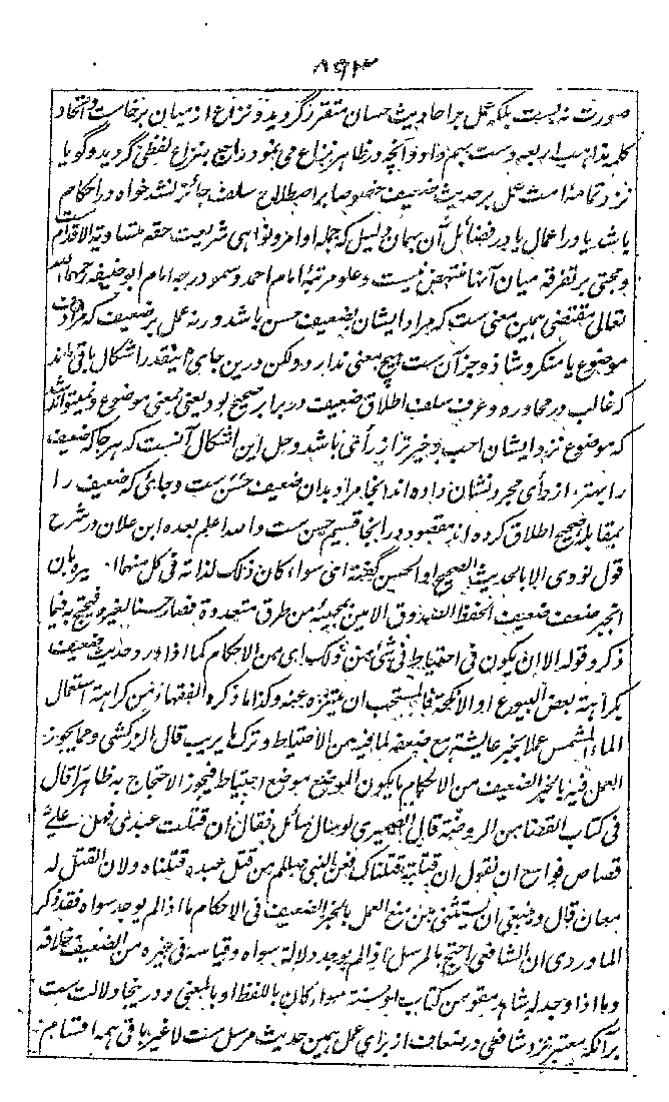 صورت نه بست بلکه عمل بر احادیث حسان متقرر گردید و نزاع از میان برخاست و اتحاد
کلمه مذاهب اربعه دست بهم داد و آنچه در ظاهر نزاع می نمود راجع بنزاع لفظی گردید و گویا
نزد تمامه امت عمل بر حدیث ضعیف خصوصا بر اصطلاح سلف جائز نشد خواه در احکام
باشد یا در اعمال یا در فضائل آن بهمان دلیل که جمله اوامر و نواهی شریعت حقه متساویة الاقدام ست
و حجتی بر تفرقه میان آنها منتهض نیست و علو مرتبۀ امام احمد و سمو درجه امام ابو حنیفه رحمهما الله
تعالی مقتضی همین معنی ست که مراد ایشان بضعیف حسن باشد ورنه عمل بر ضعیف که مرادف
موضوع یا منکر و شاذ و جز آن ست هیچ معنی ندارد ولکن درین جای اینقدر اشکال باقی ماند
که غالب در محاوره و عرف سلف اطلاق ضعیف در برابر صحیح بود یعنی بمعنی موضوع و نمیتواند شد
که موضوع نزد ایشان احب و خیرتر از رأی باشد و حل این اشکال آنست که هر جا که ضعیف
را بهتر از رأی مجرد نشان داده اند آنجا مراد بدان ضعیف حسن ست و جای که ضعیف را
بمقابله صحیح اطلاق کرده اند مقصود در اینجا قسیم حسن ست و الله اعلم بعده ابن علان در شرح
قول نووی الا بالحدیث الصحیح او الحسن گفته ای سواء کان ذلک لذاته فی کل منهما او لغیره بان
انجبر ضعف ضعیف الحفظ الصدوق الامین بمجیئه من طرق متعدده فصار حسنا لغیره فیحتج به فیما
ذکر و قوله الا ان یکون فی احتیاط فی شئ من ذلک ای من الاحکام کما اذا ورد حدیث ضعیف
بکراهة بعض البیوع او الانکحة فالمستحب ان یتنزه عنه وکذا ما ذکره الفقهاء من کراهة استعمال
الماء المشمس عملا بخبر عائشة مع ضعفه لما فیه من الاحتیاط و ترک ما یریب قال الزرکشی و مما یجوز
العمل فیه بالخبر الضعیف من الاحکام ما یکون الموضع موضع احتیاط فیجوز الاحتجاج به ظاهرا قال
فی کتاب القضا من الروضة قال الصیمری لو سال سائل فقال ان قتلت عبدی فهل علیّ
قصاص فواسع ان نقول ان قتلته قتلناک فعن النبی صلعم من قتل عبده قتلناه ولان القتل له
معان قال و ینبغی ان یستثنی من منع العمل بالخبر الضعیف فی الاحکام ما اذا لم یوجد سواه فقد ذکر
الماوردی ان الشافعی احتج بالمرسل اذا لم یوجد دلالة سواه و قیاسه فی غیره من الضعیف خلافه
و ما اذا وجد له شاهد مقو من کتاب او سنة سواء کان باللفظ او بالمعنی و درینجا دلالت ست
بر آنکه معتبر نزد شافعی در ضعاف از برای عمل همین حدیث مرسل ست لا غیر باقی همه اقسام